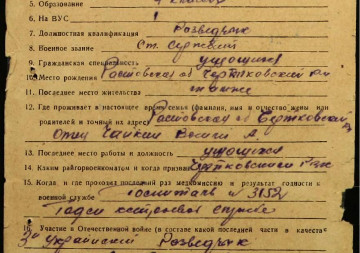 5. Образование 4 класса
6. На ВУС 1
7. Должностная квалификация Разведчик
8. Военное звание Ст. Сержант
9. Гражданская специальность учащийся
10. Место рождения Ростовская об Чертковский р-н
11. Последнее место жительства
12. Где проживает в настоящее время семья (фамилия, имя и отчество жены или
родителей и точный их адрес) Ростовская об Чертковский
Отец Чайкин
13. Последнее место работы и должность учащийся
14. Каким райгорвоенкоматом и когда призван Чертковским Рвк
15. Когда и где проходил последний раз медкомиссию и результат годности к
военной службе Госпиталь № 3152
Годен к строевой службе
16. Участие в Отечественной войне (в составе какой последней части в качестве
3й Украинский Разведчик